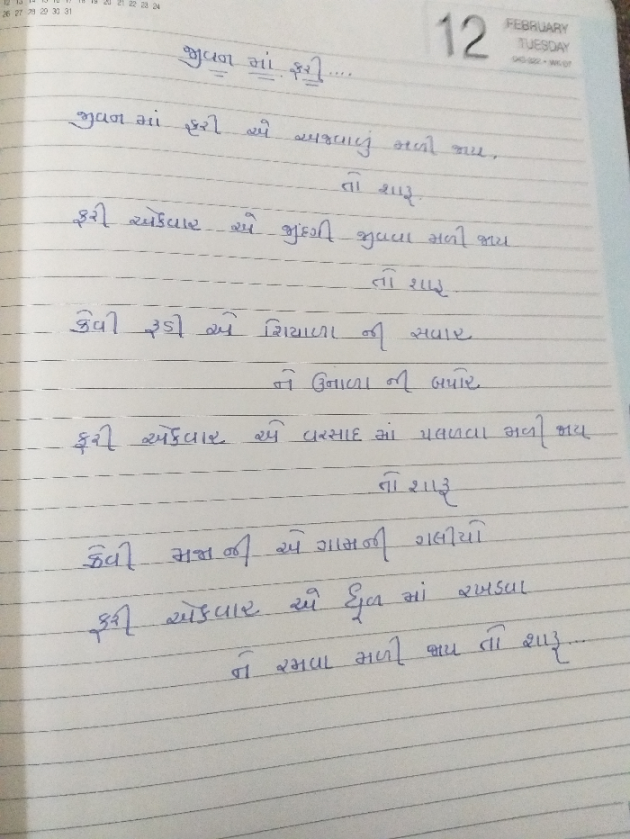 12 13 14 15 16 17 18 19 20 21 22 23 24
26 27 28 29 30 31
12
FEBRUARY
TUESDAY
જીવન માં ફરી....
જીવન માં ફરી એ અજવાળું મળી જાય,
તો સારૂ.
ફરી એકવાર એ જીંદગી જીવવા મળી જાય
તો સારૂ
કેવી રૂડી એ શિયાળા ની સવાર
ને ઉનાળા ની બપોર
ફરી એકવાર એ વરસાદ માં પલળવા મળી જાય
તો સારૂ
કેવી મજા ની એ ગામની ગલીયો
ફરી એકવાર એ ધૂળ માં રખડવા
ને રમવા મળી જાય તો સારૂ...